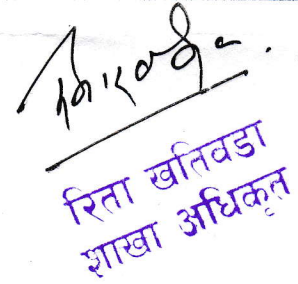 रिता खतिवडा
शाखा अधिकृत